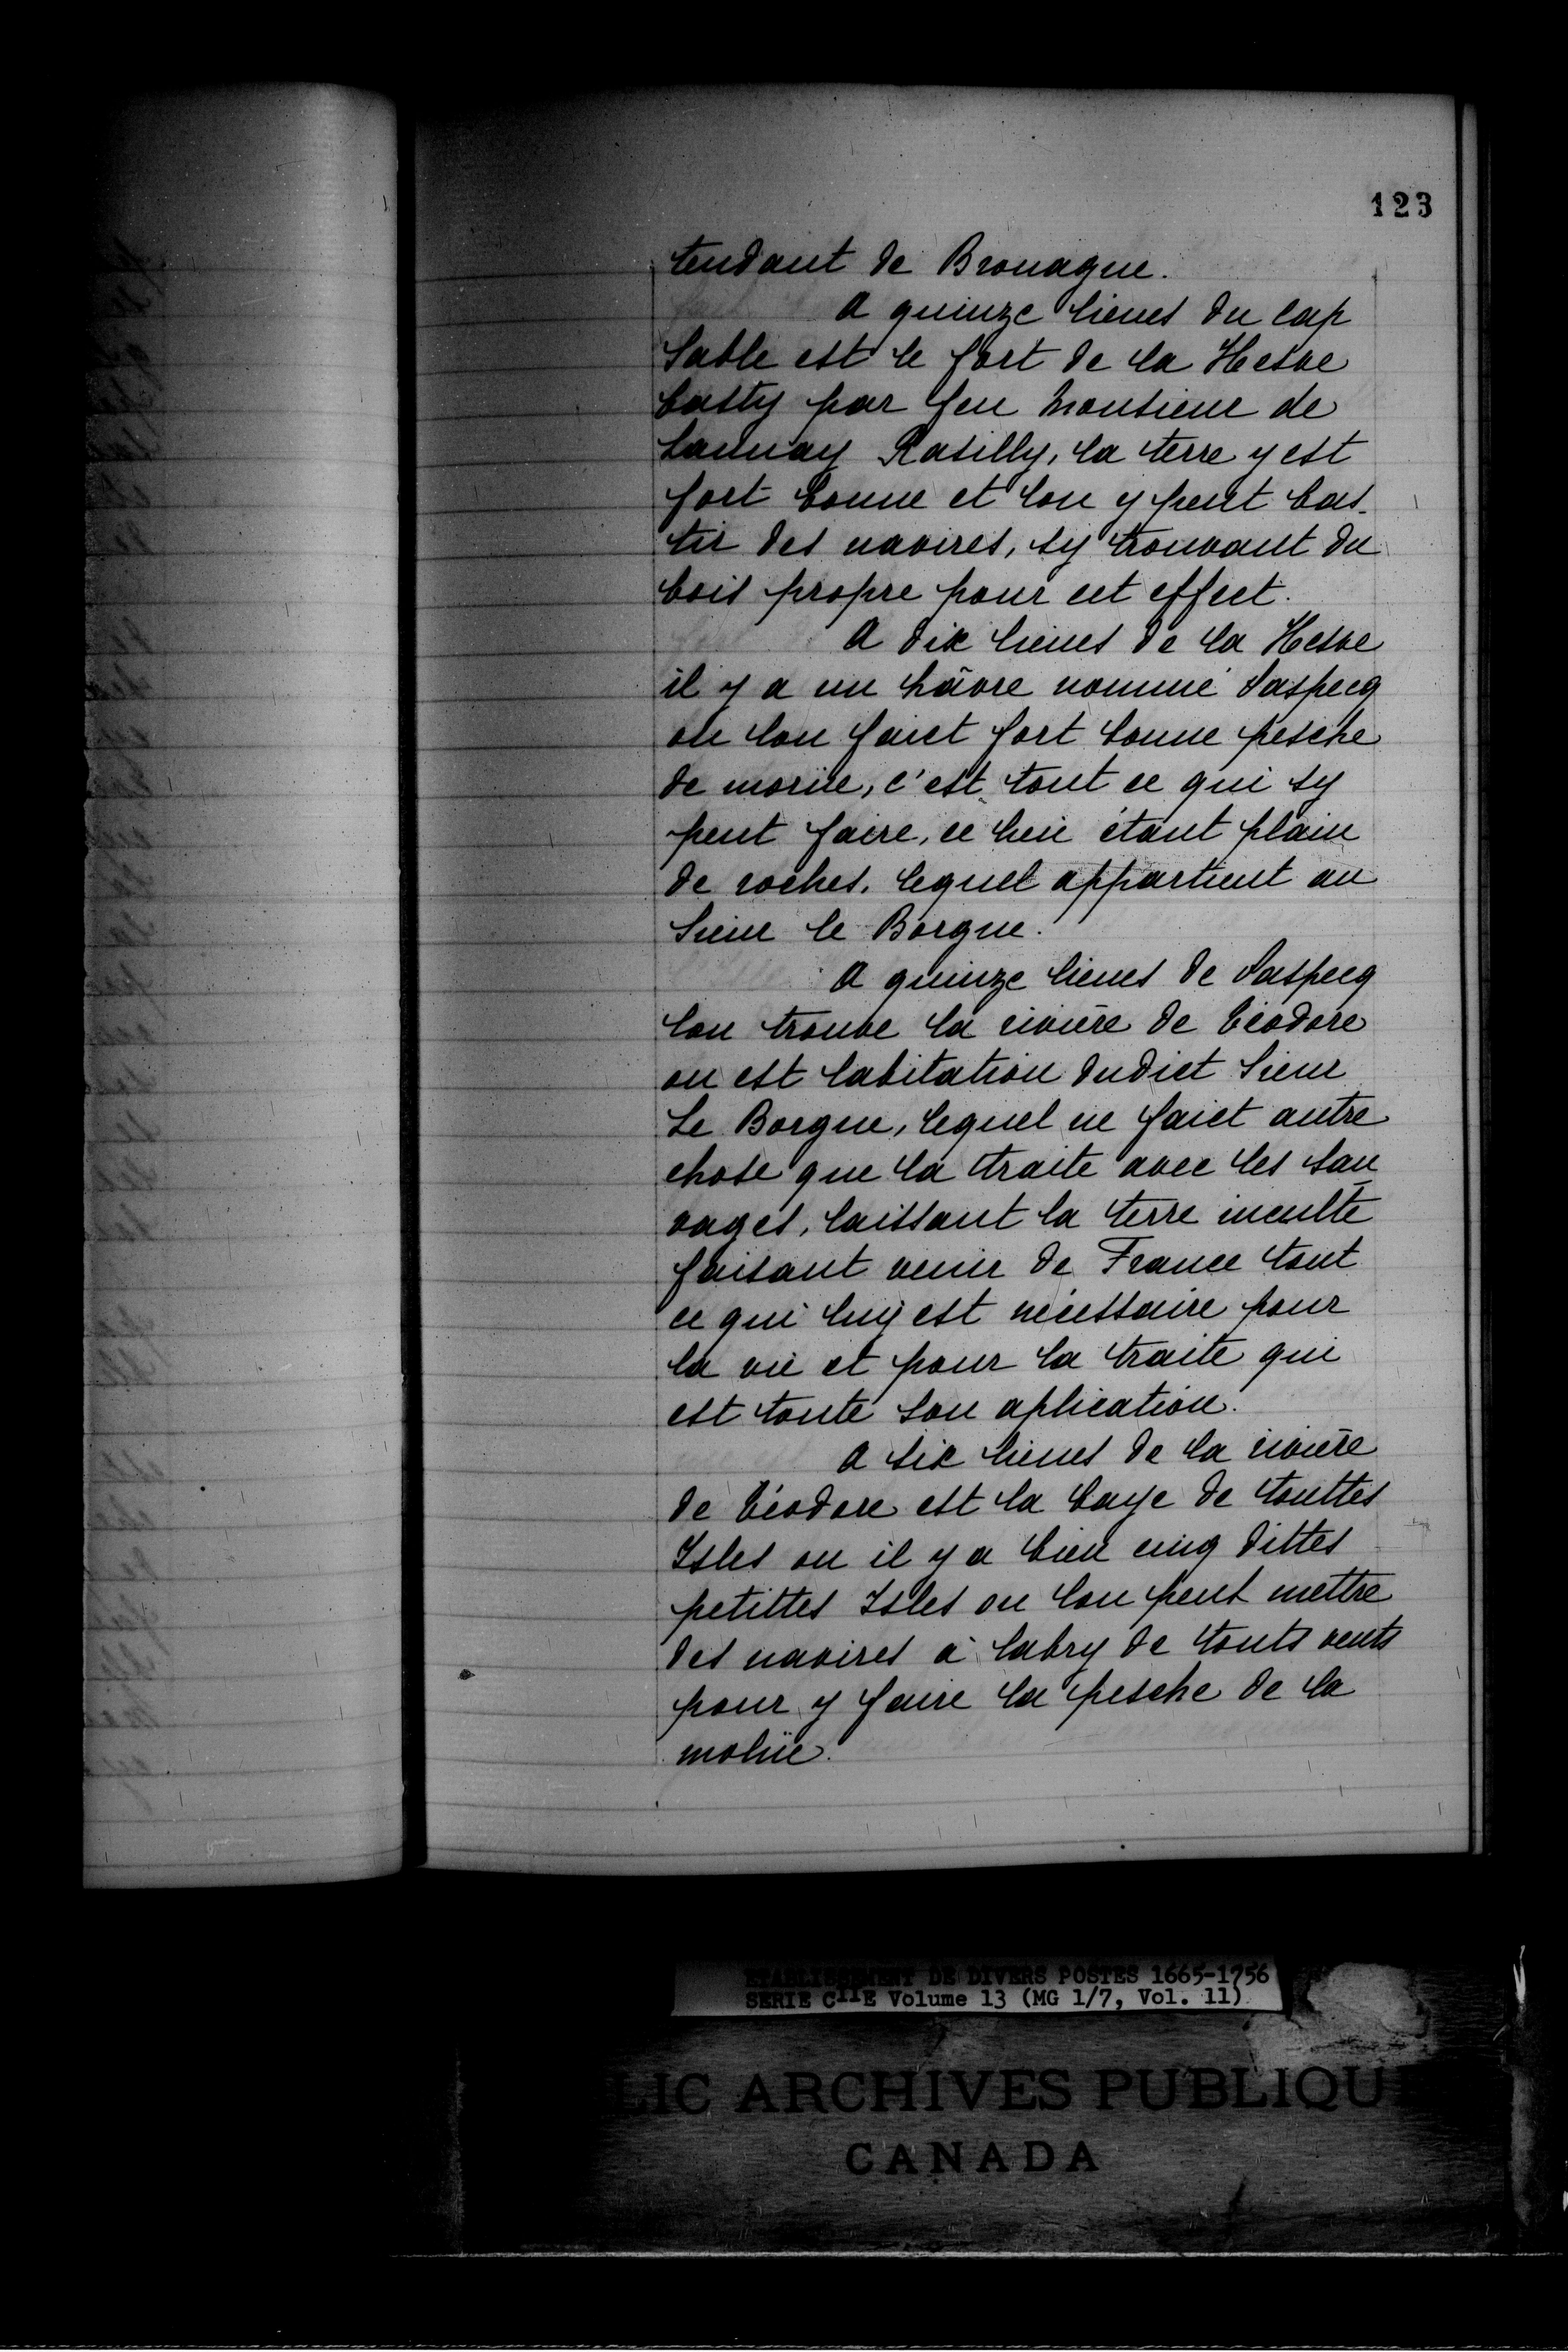 123
tendant de Brouague.
A quinze lieues du Cap
Sable est le fort de la Hesve
basty par feu Monsieur de
Launay Rasilly, la terre y est
fort bonne et lon y peut bas-
tir des navires, sy trouvant du
bois propre pour cet effect.
A dix lieues de la Hesve
il y a un hâvre nommé Paspecq
ou lon faict fort bonne pesche
de morüe, c'est tout ce qui sy
peut faire, ce lieu étant plain
de roches, lequel appartient au
Sieur le Borgne.
A quinze lieues de Paspecq
lon trouve la rivière de Théodore
ou est labitation dudict Sieur
Le Borgne, lequel ne faict autre
chose que la traite avec les sau
vages, laissant la terre inculte
faisant venir de France tout
ce qui luy est nécessaire pour
la vie et pour la traite qui
est toute son aplication.
A six lieues de la rivière
de Théodore est la baye de touttes
Isles ou il y a bien cinq dittes
petittes Isles ou lon peut mettre
des navires à labry de touts vents
pour y faire la pesche de la
molüe.
ETABLISSEMENT DE DIVERS POSTES 1665-1756
SERIE C11E Volume 13 (MG 1/7, Vol. 11)
LIC ARCHIVES PUBLIQU
CANADA